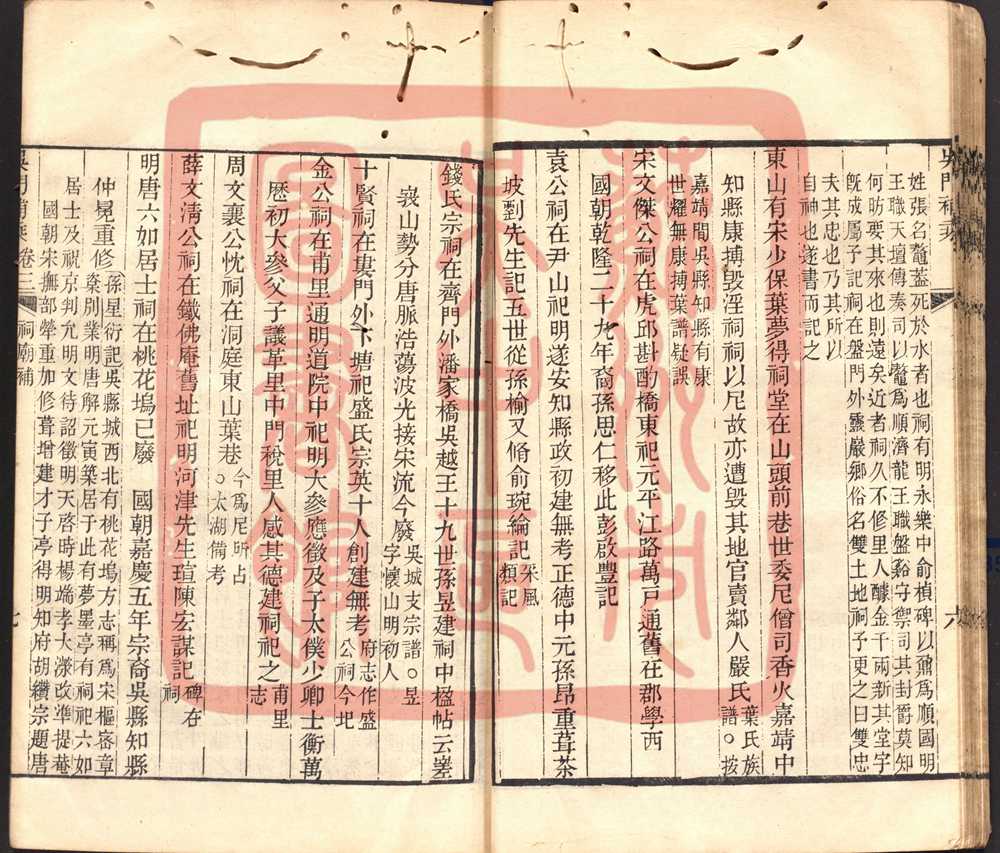 姓張名鼇蓋死於水者也祠有明永樂中俞楨碑以鼐爲順國明
王職天壇傳奏司以鼇爲順濟龍王職盤谿守禦司其封爵莫知
何昉要其來也則遠矣近者祠久不修里人醵金千兩新其堂宇
旣成屬予記祠在盤門外靈巖鄉俗名雙土地祠予更之曰雙忠
夫其忠也乃其所以
自神也遂書而記之
東山有宋少保葉夢得祠堂在山頭前巷世委尼僧司香火嘉靖中
知縣康摶毁淫祠祠以尼故亦遭毁其地官賣鄰人嚴氏葉氏族譜○按
嘉靖間吳縣知縣有康
世耀無康摶葉譜疑誤
宋文傑公祠在虎邱斟酌橋東祀元平江路萬戸通舊在郡學西
國朝乾隆二十九年裔孫思仁移此彭啟豐記
袁公祠在尹山祀明遂安知縣政初建無考正德中元孫昂重葺茶
坡劉先生記五世從孫榆又脩俞琬綸記采風類記
六
錢氏宗祠在齊門外潘家橋吳越王十九世孫昱建祠中楹帖云嵳
峩山勢分唐脈浩蕩波光接宋流今廢吳城支宗譜○昱字懷山明初人
十賢祠在婁門外下塘祀盛氏宗英十人創建無考府志作盛公祠今圮
金公祠在甫里通明道院中祀明大參應徵及子太僕少卿士衡萬
厯初大參父子議革里中門稅里人感其德建祠祀之甫里志
周文襄公忱祠在洞庭東山葉巷今爲尼所占○太湖備考
薛文淸公祠在鐵佛庵舊址祀明河津先生瑄陳宏謀記碑在祠
明唐六如居士祠在桃花塢已廢 國朝嘉慶五年宗裔吳縣知縣
仲冕重修孫星衍記吳縣城西北有桃花塢方志稱爲宋樞密章
楶別業明唐解元寅築居于此有夢墨亭有祠祀六如
居士及祝京判允明文待詔徵明天啓時楊端孝大濚改準提菴
國朝宋撫部犖重加修葺增建才子亭得明知府胡纘宗題唐
祠廟補
七